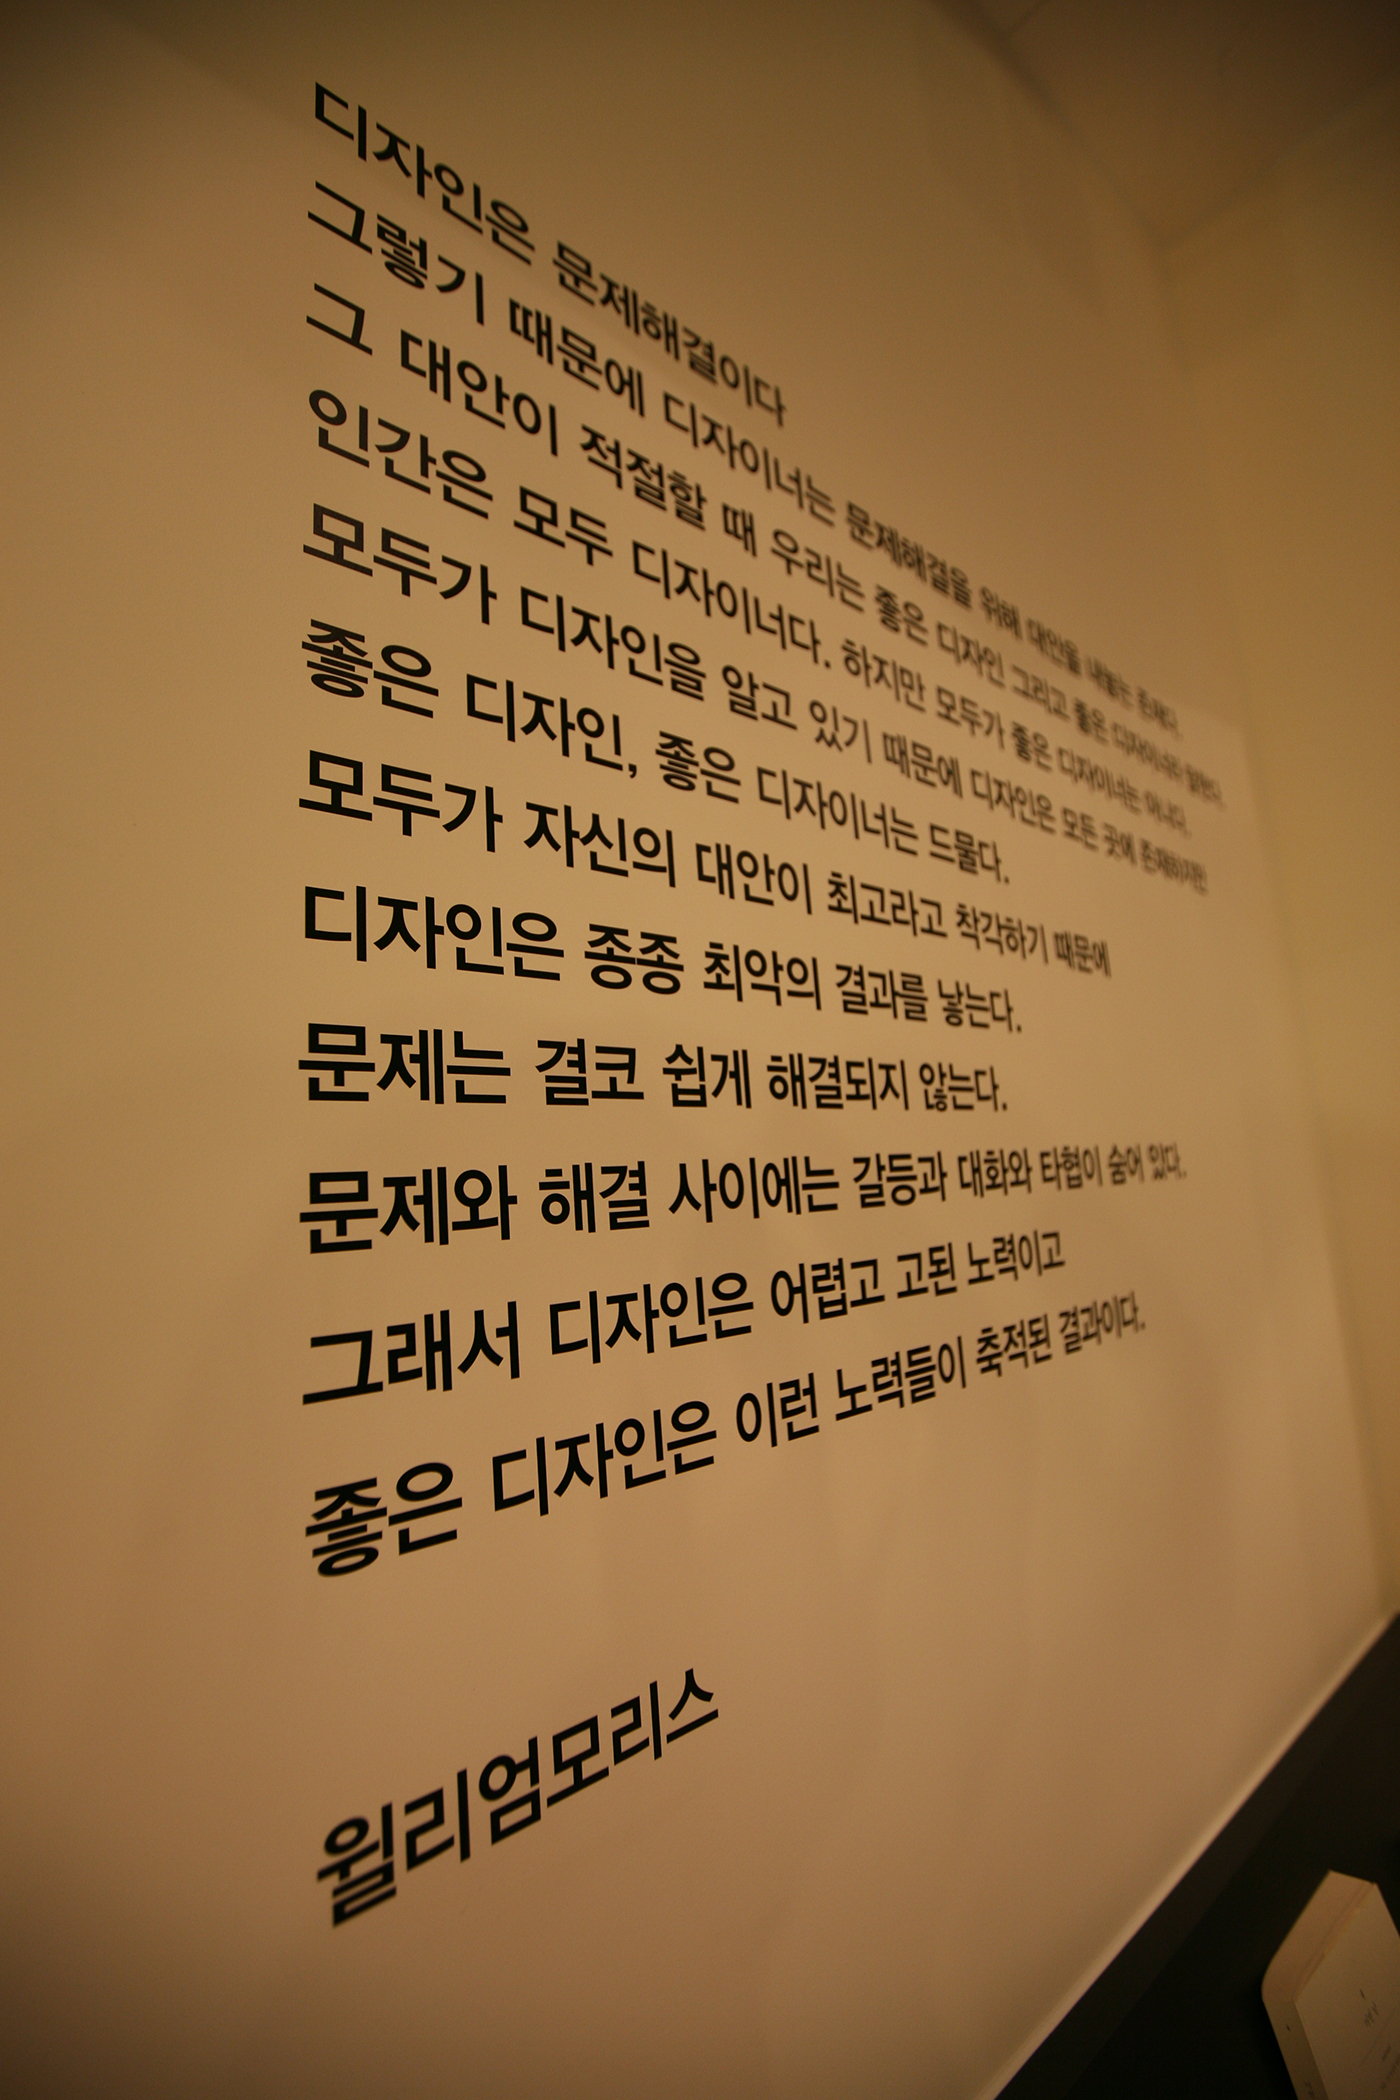 디자인은 문제해결이다
그렇기 때문에 디자이너는 문제해결을 위해 대안을 내놓는 존재다.
그 대안이 적절할 때 우리는 좋은 디자인 그리고 좋은 디자이너라 말한다.
인간은 모두 디자이너다. 하지만 모두가 좋은 디자이너는 아니다.
모두가 디자인을 알고 있기 때문에 디자인은 모든 곳에 존재하지만
좋은 디자인, 좋은 디자이너는 드물다.
모두가 자신의 대안이 최고라고 착각하기 때문에
디자인은 종종 최악의 결과를 낳는다.
문제는 결코 쉽게 해결되지 않는다.
문제와 해결 사이에는 갈등과 대화와 타협이 숨어 있다.
그래서 디자인은 어렵고 고된 노력이고
좋은 디자인은 이런 노력들이 축적된 결과이다.
윌리엄모리스